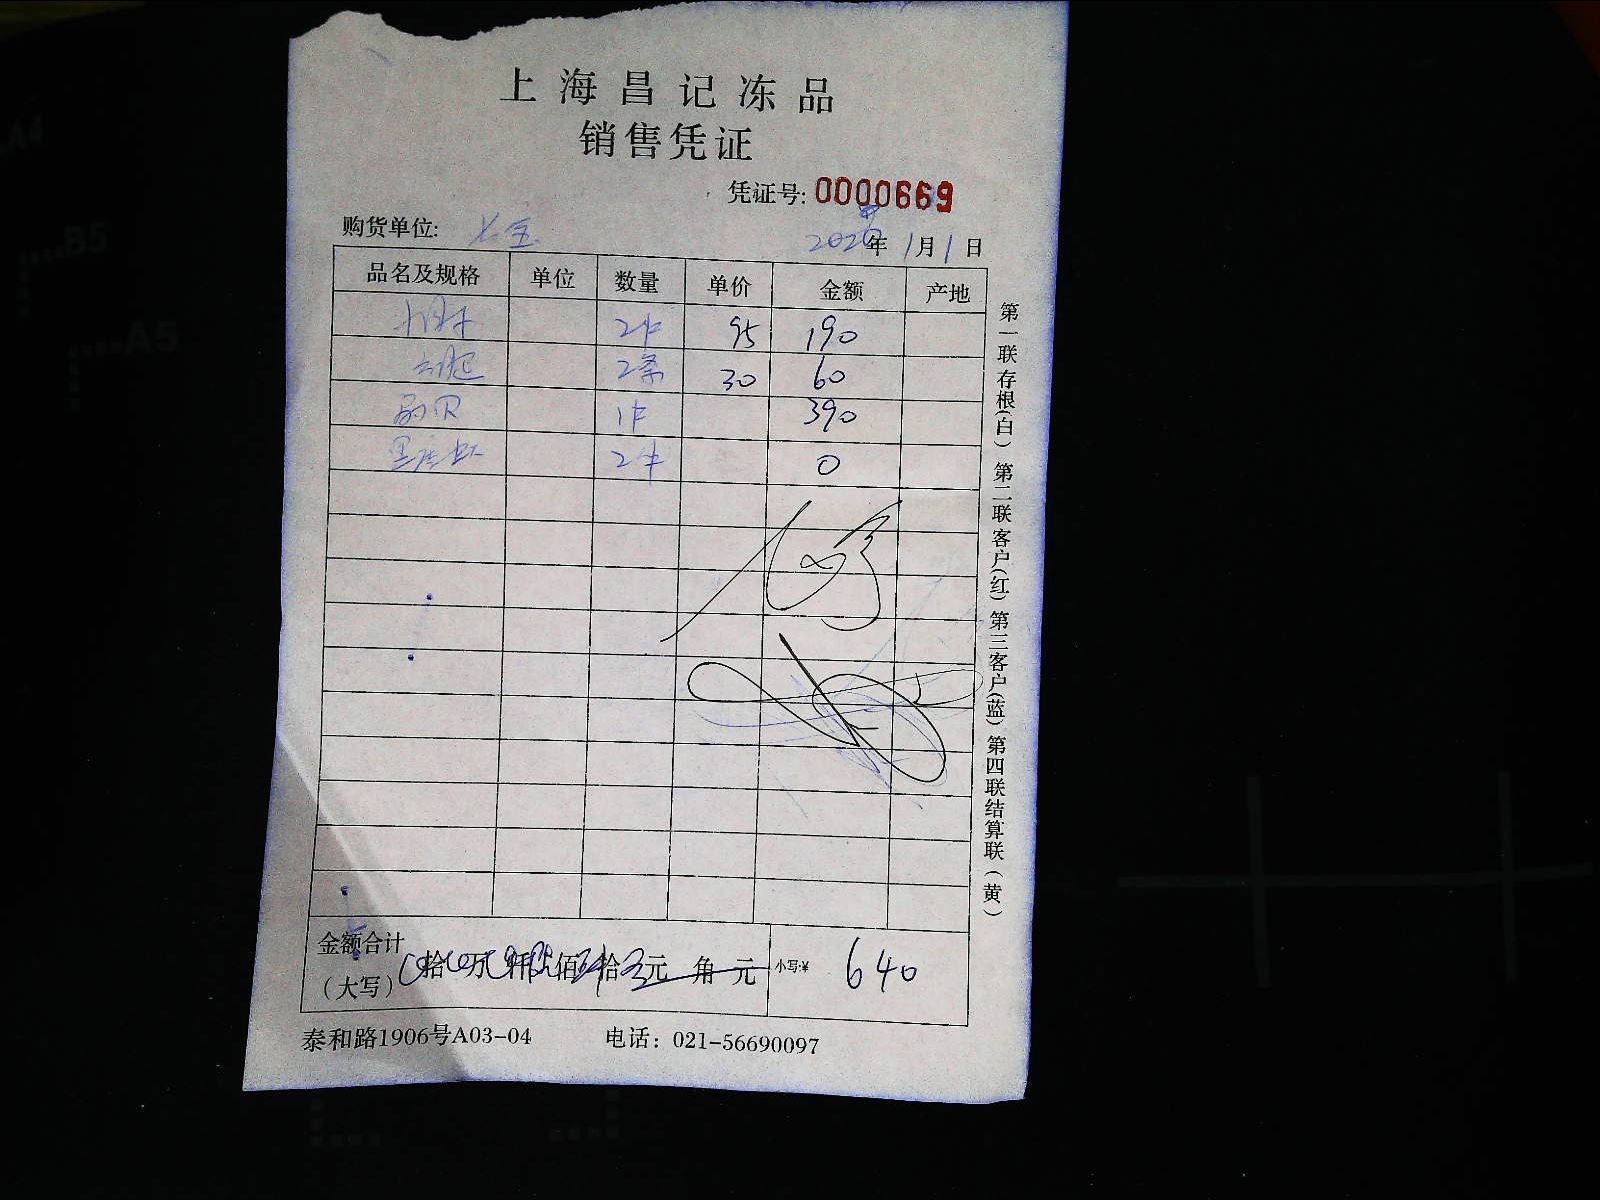 上海昌记冻品
销售凭证
凭证号: 0000669
购货单位:
年 1月1日
品名及规格 单位 数量 单价 金额 产地
2件 95 190
2条 30 60
1件 390
2件 0
金额合计
(大写) 拾 万 仟 佰 拾 元 角 元 小写:¥ 640
泰和路1906号A03-04 电话: 021-56690097
第一联存根(白) 第二联客户(红) 第三客户(蓝) 第四联结算联(黄)
A4
B5
A5